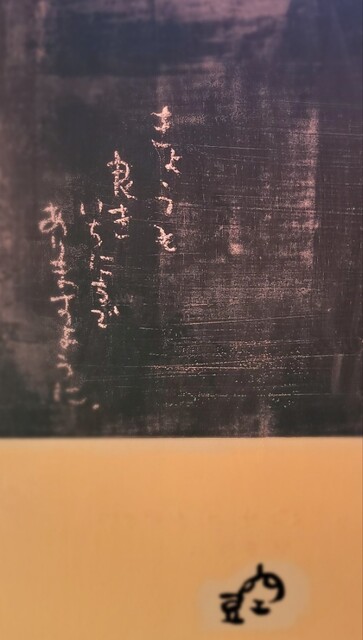 きょうも
良き
いちにちで
ありますように。
豆